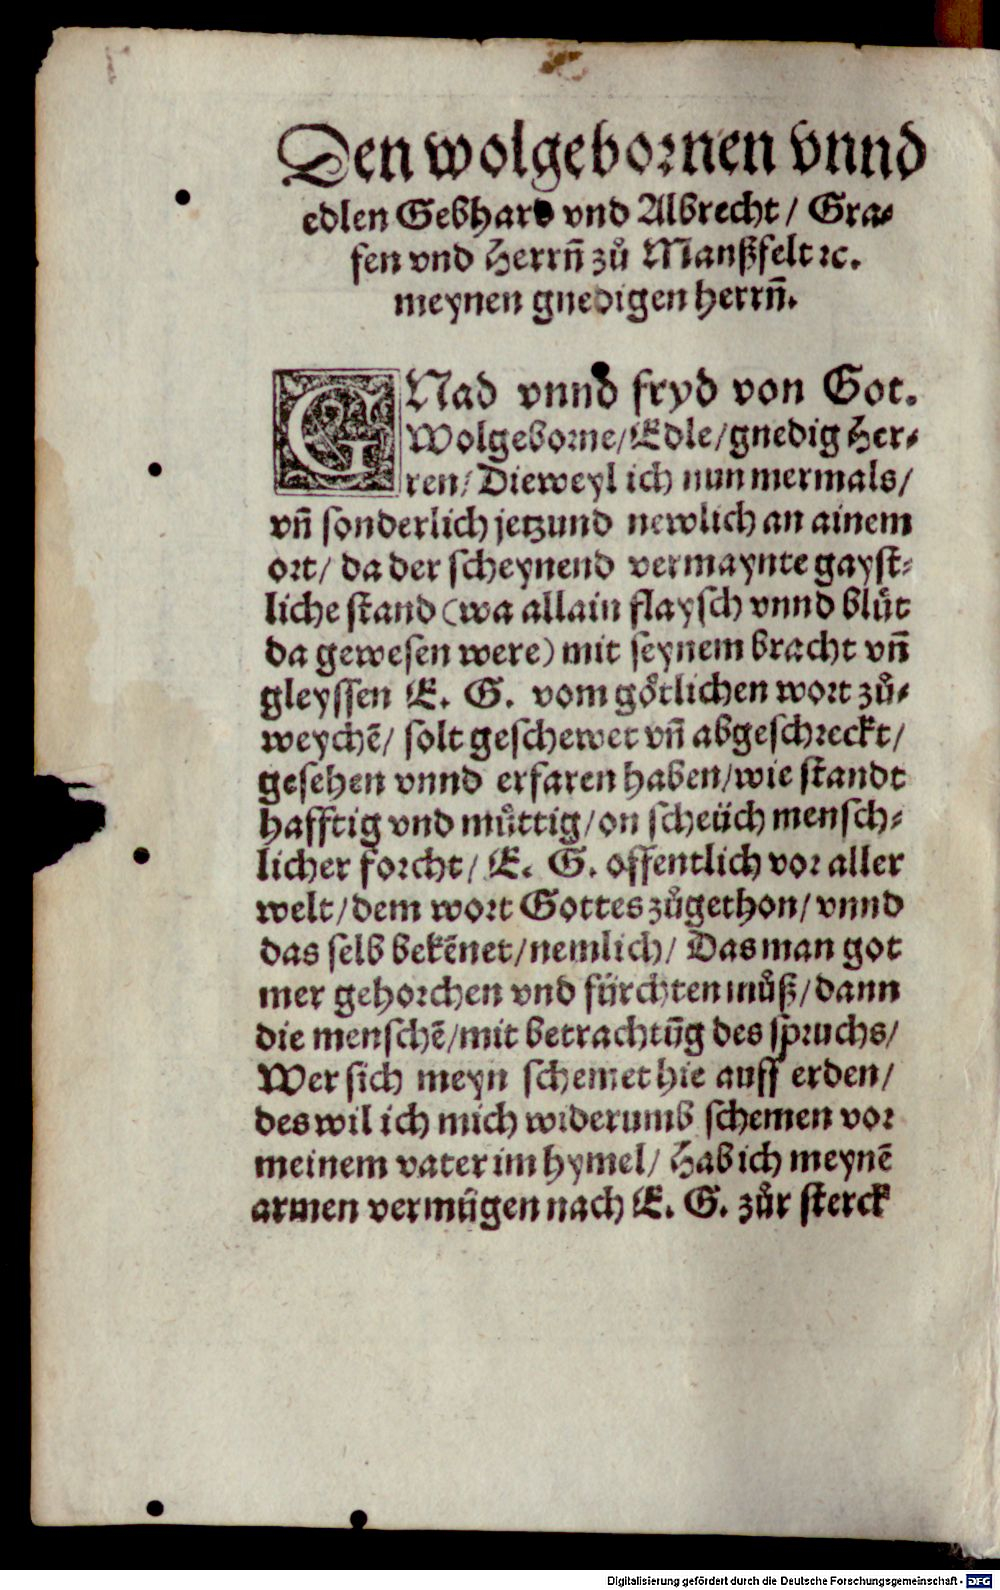 Den wolgebornen vnnd
edlen Gebhard vnd Albrecht / Gra-
fen vnd Herrn̄ zů Manßfelt ꝛc.
meynen gnedigen herrn̄.
GNad vnnd fryd von Got.
Wolgeborne / Edle / gnedig Her-
ren / Dieweyl ich nun mermals /
vn̄ sonderlich jetzund newlich an ainem
ort / da der scheynend vermaynte gayst-
liche stand (wa allain flaysch vnnd blůt
da gewesen were) mit seynem bracht vn̄
gleyssen E. G. vom götlichen wort zů-
weychē / solt geschewet vn̄ abgeschreckt /
gesehen vnnd erfaren haben / wie standt
hafftig vnd můttig / on scheüch mensch-
licher forcht / E. G. offentlich vor aller
welt / dem wort Gottes zůgethon / vnnd
das selb bekēnet / nemlich / Das man got
mer gehorchen vnd fürchten můß / dann
die menschē / mit betrachtūg des spruchs /
Wer sich meyn schemet hie auff erden /
des wil ich mich widerumb schemen vor
meinem vater im hymel / Hab ich meynē
armen vermügen nach E. G. zůr sterck
Digitalisierung gefördert durch die Deutsche Forschungsgemeinschaft - DFG